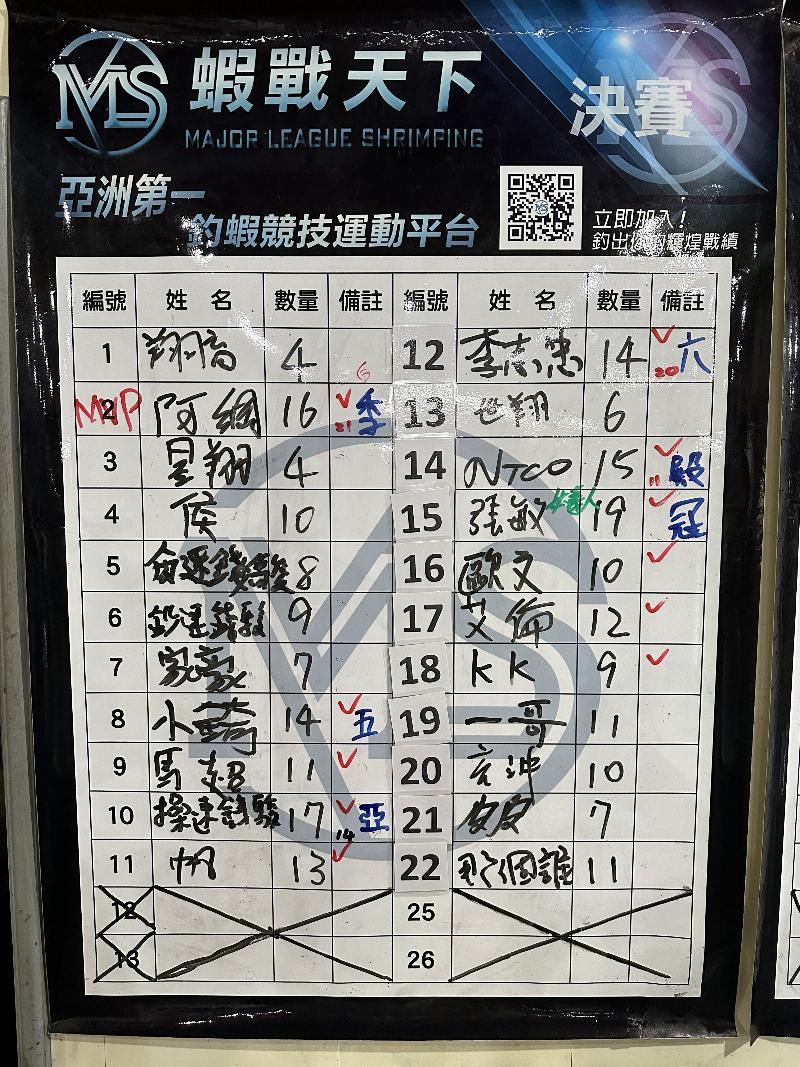 MLS 蝦戰天下
MAJOR LEAGUE SHRIMPING
決賽
亞洲第一
釣蝦競技運動平台
立即加入！
釣出你的輝煌戰績
編號 姓名 數量 備註 編號 姓名 數量 備註
1 翔 4 12 李志忠 14 20 六
MVP 2 阿綱 16 6 21 季 13 世翔 6
3 昱翔 4 14 NTCO 15 11 殿
4 侯 10 15 張敏 19 冠
5 8 16 歐文 10
6 9 17 艾倫 12
7 家豪 7 18 KK 9
8 小 14 五 19 一哥 11
9 馬超 11 20 沖 10
10 17 14 亞 21 皮皮 7
11 帆 13 22 那個誰 11
12 25
13 26